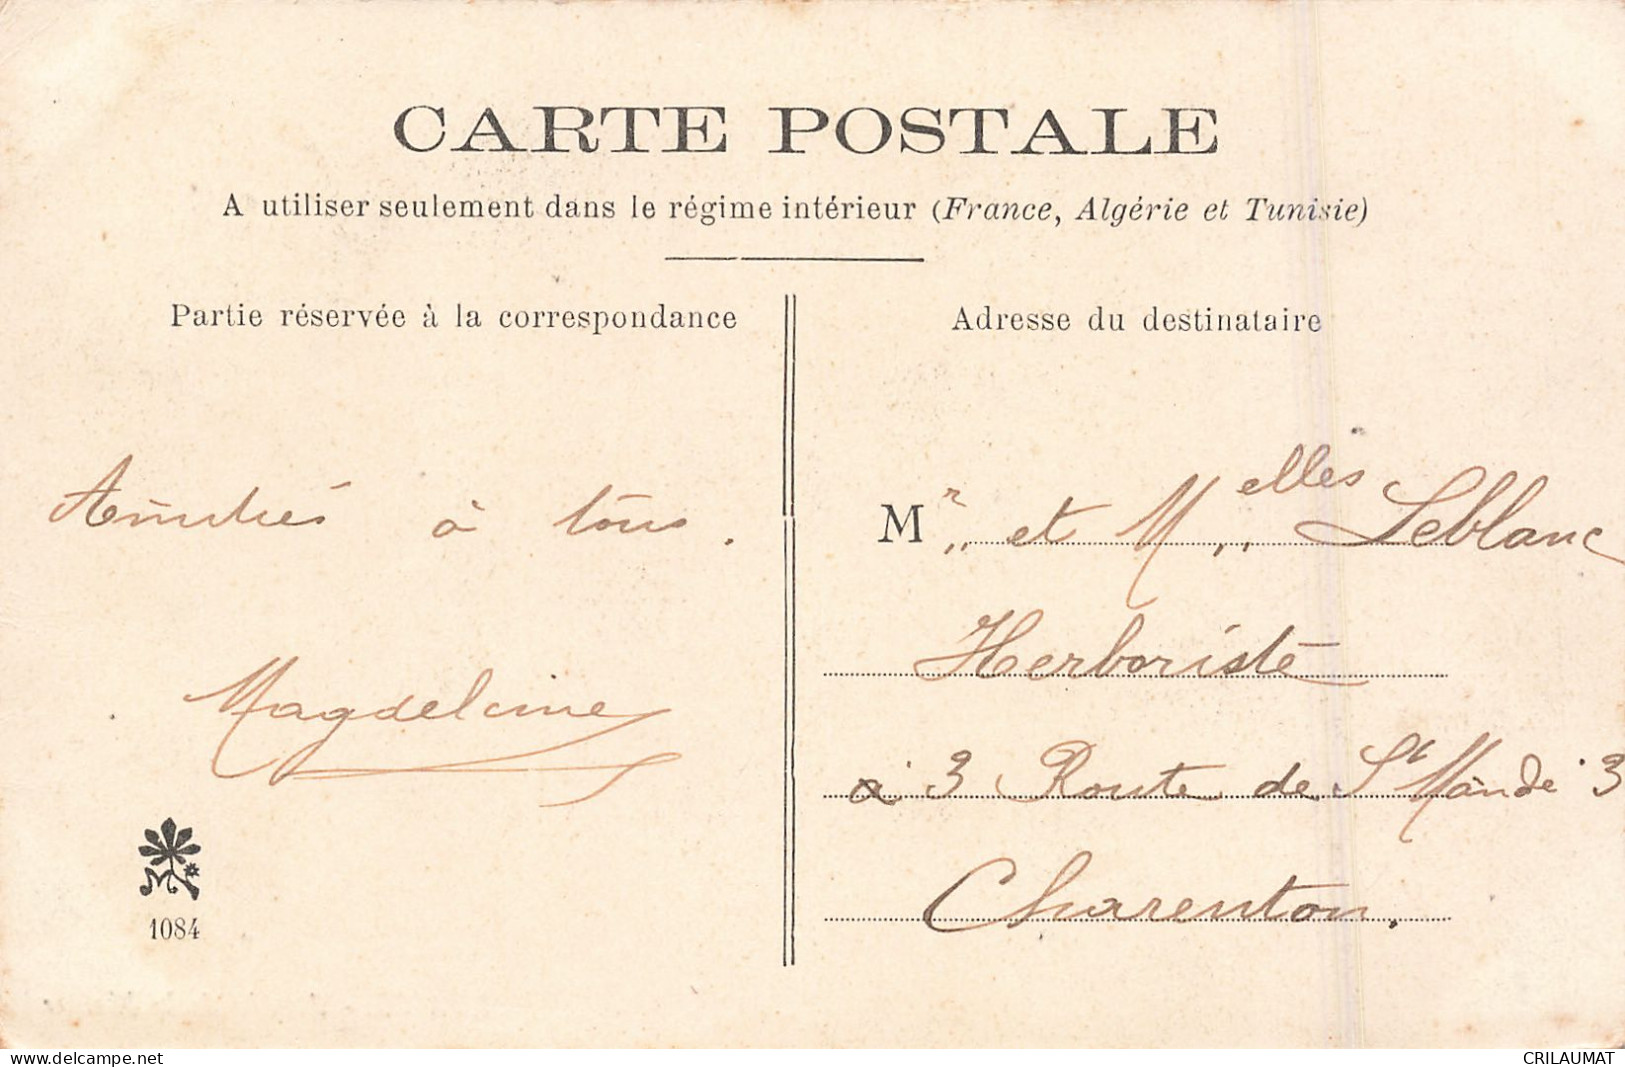 CARTE POSTALE
A utiliser seulement dans le régime intérieur (France, Algérie et Tunisie)
Partie réservée à la correspondance
Adresse du destinataire
Amitiés à tous.
Magdeleine
Mr et Melles Leblanc
Herboriste
à 3 Route de St Mandé 3
Charenton.
M
1084
www.delcampe.net
CRILAUMAT